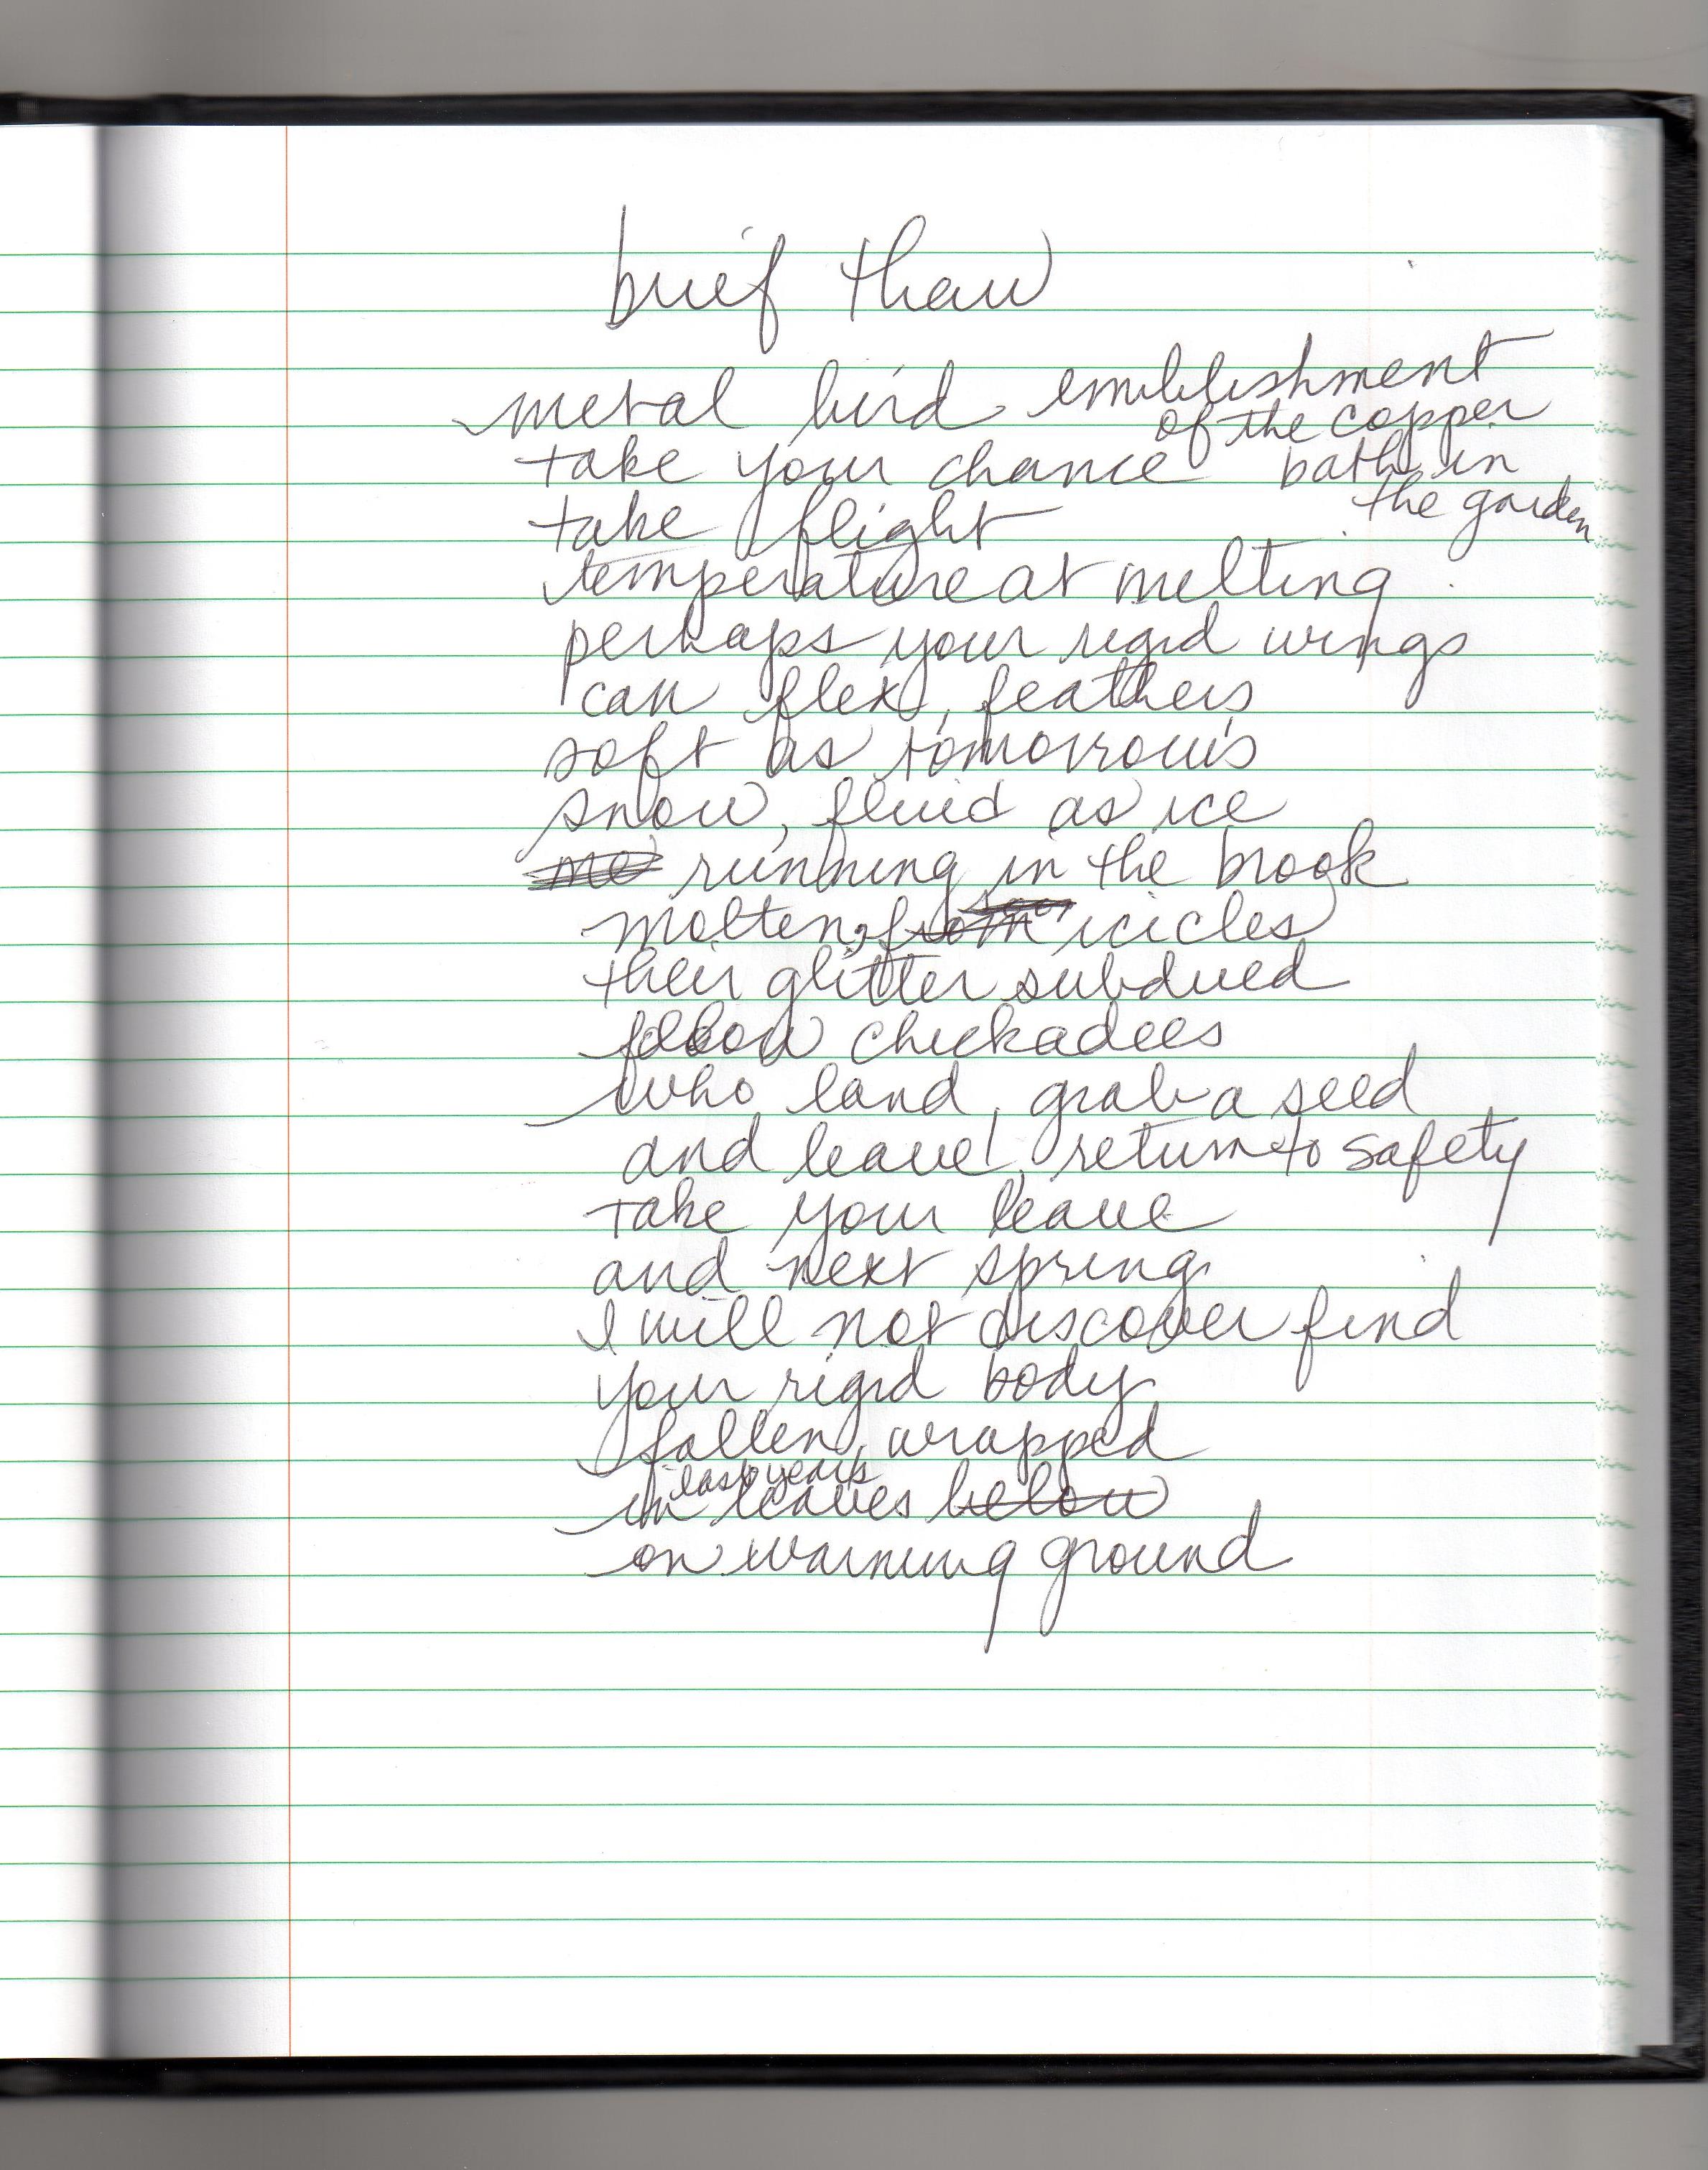 brief thaw
metal bird emblishment
of the copper
take your chance bath in
the garden
take flight
temperature at melting
perhaps your rigid wings
can flex, feathers
soft as tomorrow's
snow, fluid as ice
me running in the brook
molten, from icicles
their glitter subdued
follow chickadees
who land, grab a seed
and leave, return to safety
take your leave
and next spring
I will not discover find
your rigid body
fallen, wrapped
last year's
in leaves below
on warning ground